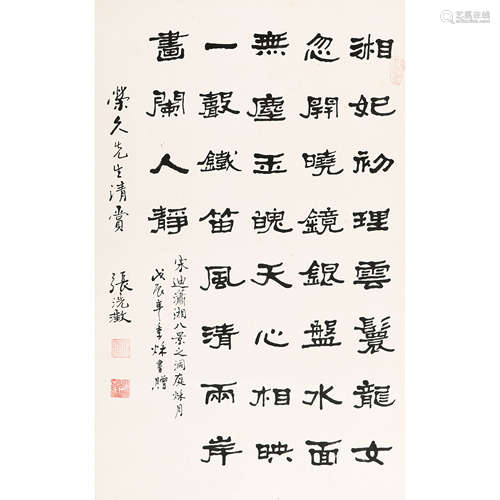 湘妃初理雲鬟龍女
忽開曉鏡銀盤水面
無塵玉魄天心相映
一聲鐵笛風清兩岸
畫闌人靜
宋迪瀟湘八景之洞庭秌月
戊辰年季秌書贈
榮久先生清賞
張洗澂